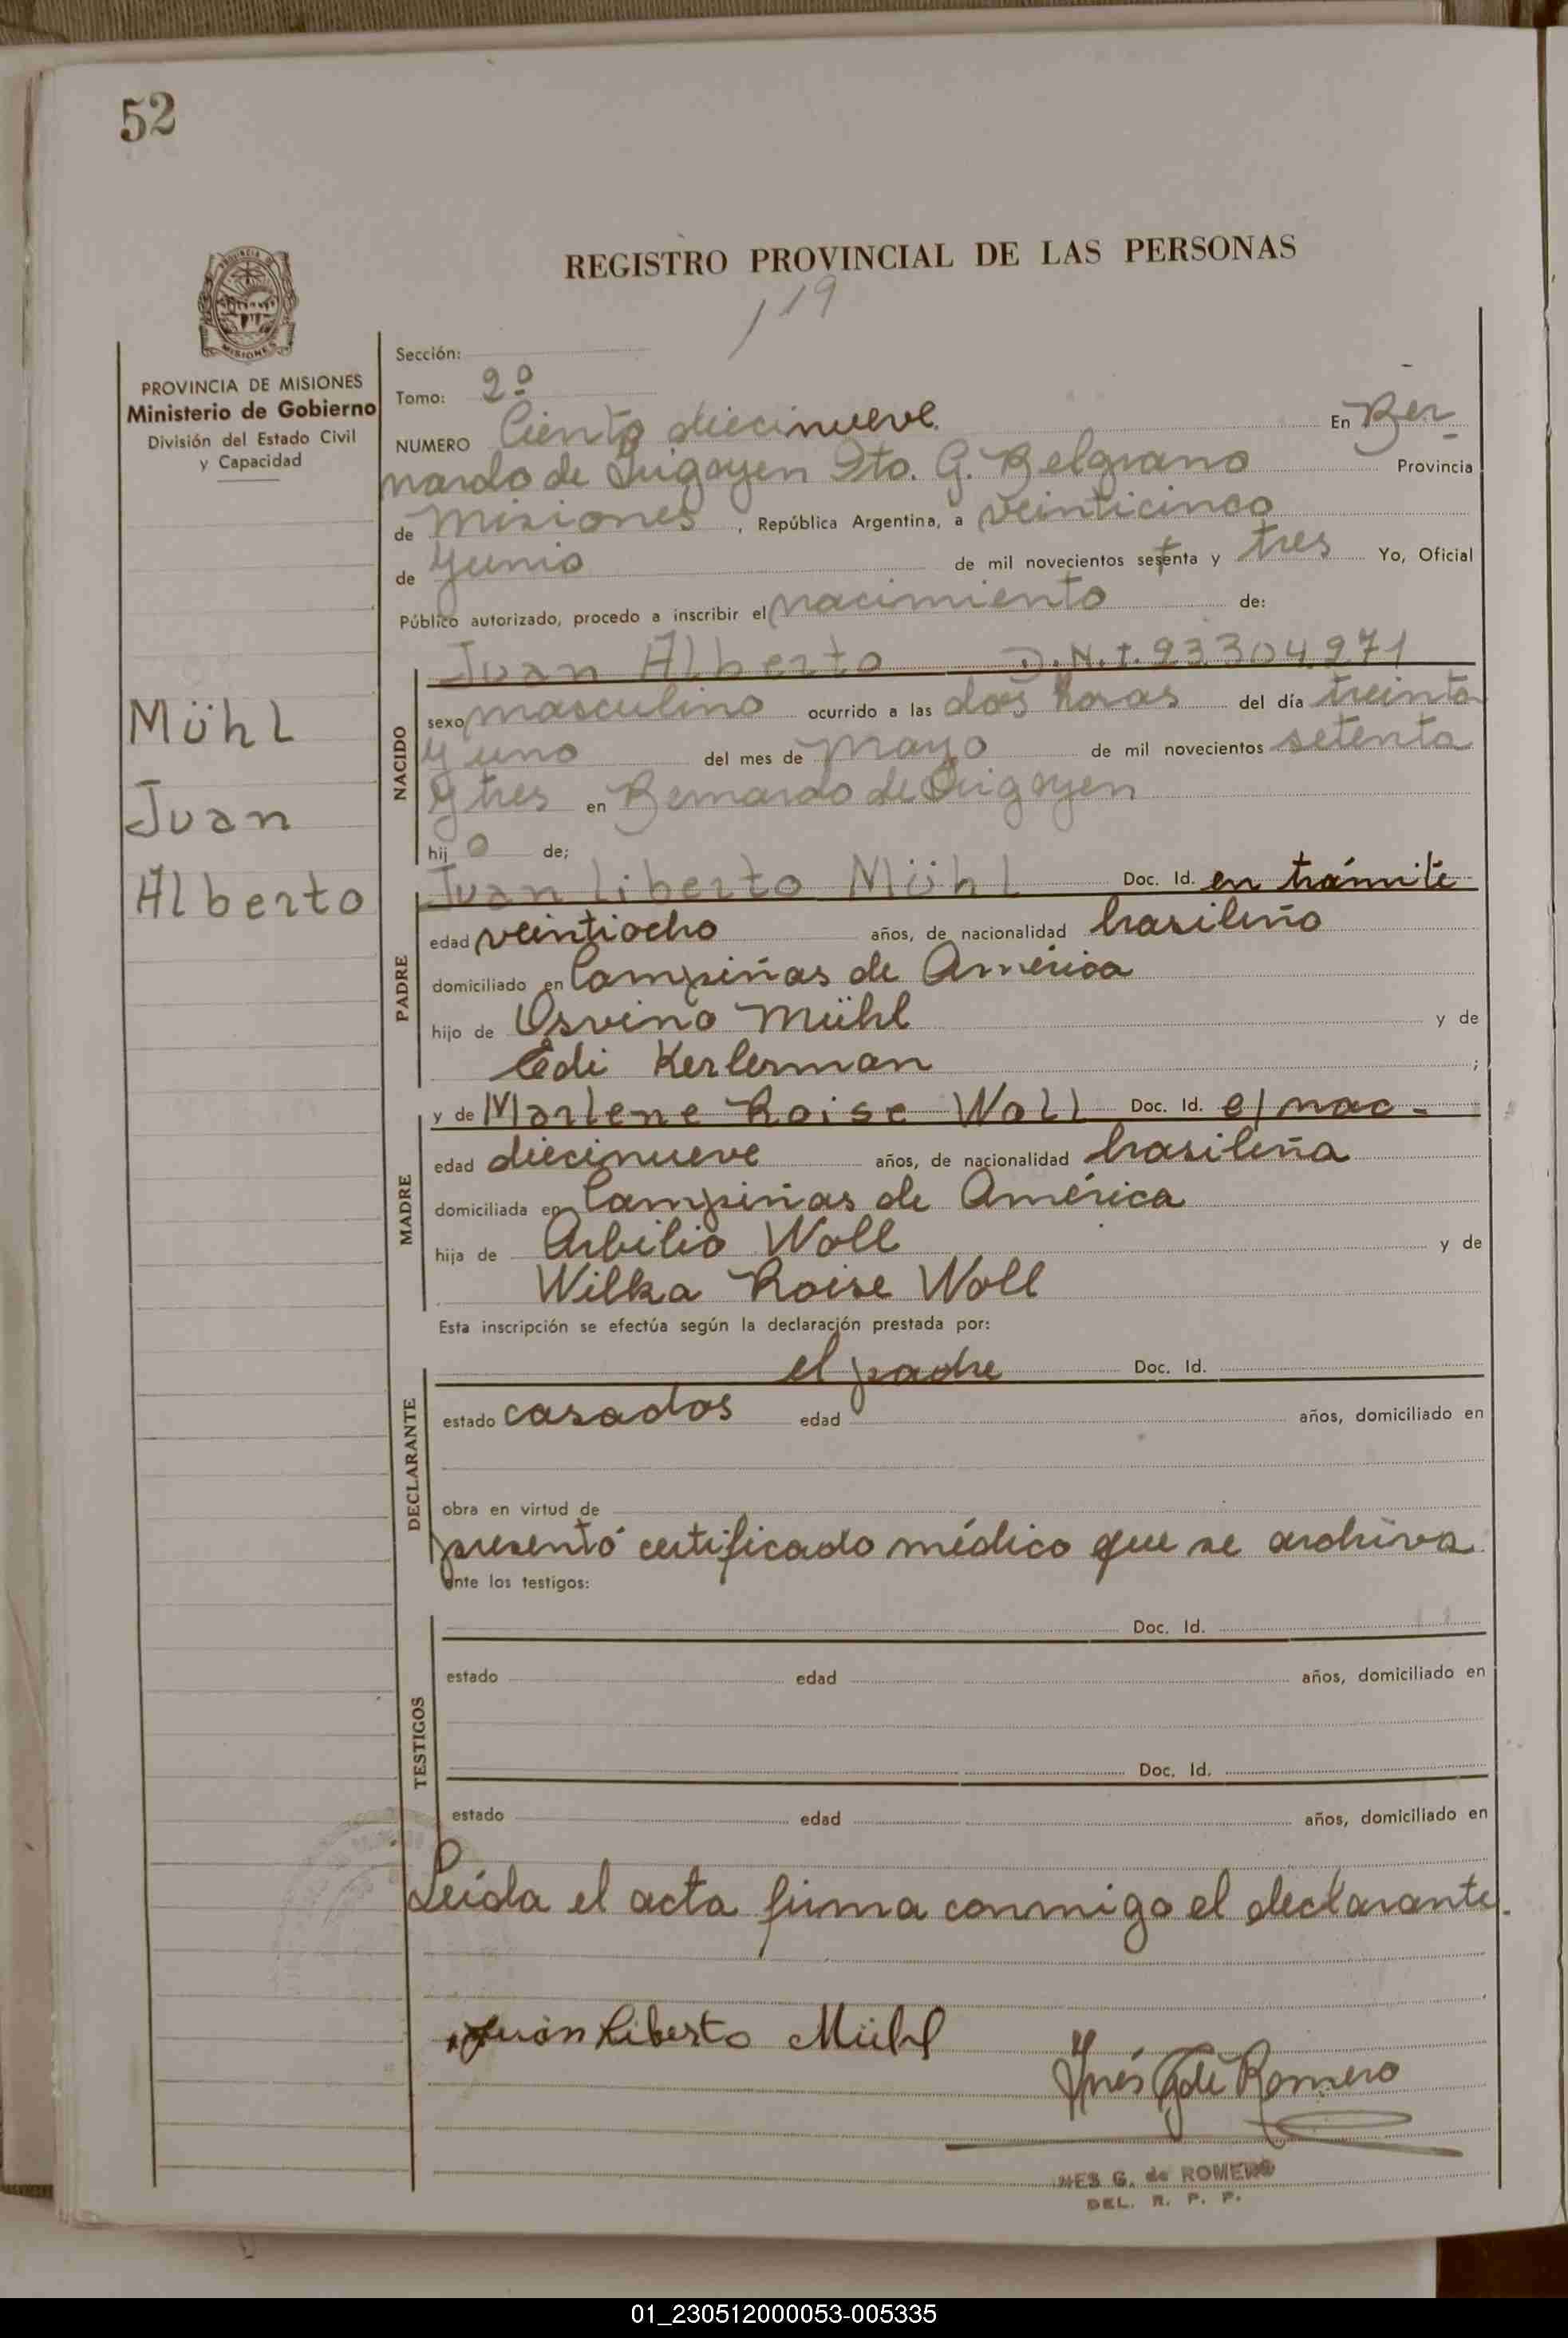 52
REGISTRO PROVINCIAL DE LAS PERSONAS
119
PROVINCIA DE MISIONES
Ministerio de Gobierno
División del Estado Civil
y Capacidad
Sección:
Tomo: 2º
NUMERO Ciento diecinueve. En Ber-
nardo de Irigoyen Dto. G. Belgrano Provincia
de Misiones, República Argentina, a veinticinco
de Junio de mil novecientos setenta y tres Yo, Oficial
Público autorizado, procedo a inscribir el nacimiento de:
Juan Alberto D.N.I. 23304971
Mühl
Juan
Alberto
NACIDO
sexo masculino ocurrido a las dos horas del día treinta
y uno del mes de Mayo de mil novecientos setenta
y tres en Bernardo de Irigoyen
hij o de;
Juan Liberto Mühl Doc. Id. en trámite
PADRE
edad veintiocho años, de nacionalidad brasileño
domiciliado en Campiñas de América
hijo de Osvino Mühl y de
Edi Kerlerman ;
y de Marlene Roise Woll Doc. Id. e/nac-
MADRE
edad diecinueve años, de nacionalidad brasileña
domiciliada en Campiñas de América
hija de Arbilio Woll y de
Wilka Roise Woll
Esta inscripción se efectúa según la declaración prestada por:
el padre Doc. Id.
DECLARANTE
estado casados edad años, domiciliado en
obra en virtud de
presentó certificado médico que se archiva
ante los testigos:
Doc. Id.
TESTIGOS
estado edad años, domiciliado en
Doc. Id.
estado edad años, domiciliado en
Leída el acta firma conmigo el declarante.
Juan Liberto Mühl
Inés G de Romero
INES G. de ROMERO
DEL. R. P. P.
01_230512000053-005335